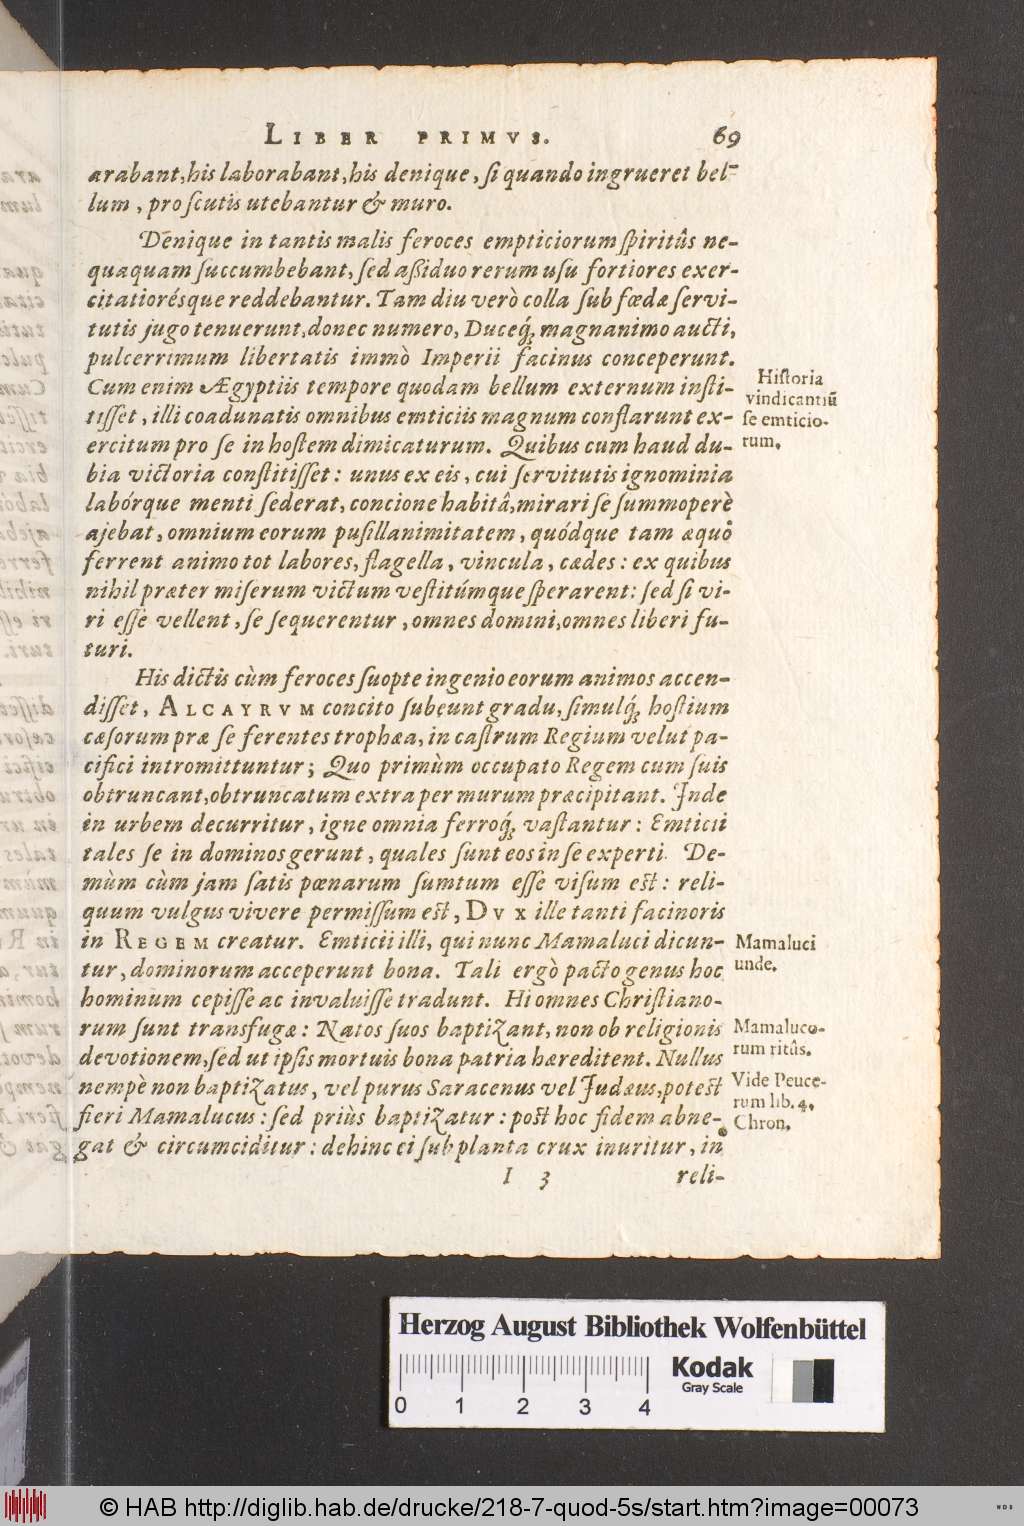 LIBER PRIMVS. 69
arabant, his laborabant, his denique, ſi quando ingrueret bel-
lum, pro ſcutis utebantur & muro.
Denique in tantis malis feroces empticiorum ſpiritûs ne-
quaquam ſuccumbebant, ſed aßiduo rerum uſu fortiores exer-
citatiorésque reddebantur. Tam diu verò colla ſub fœdæ ſervi-
tutis jugo tenuerunt, donec numero, Duceq́; magnanimo aucti,
pulcerrimum libertatis immò Imperii facinus conceperunt.
Cum enim Ægyptiis tempore quodam bellum externum inſti-
tiſſet, illi coadunatis omnibus emticiis magnum conflarunt ex-
ercitum pro ſe in hoſtem dimicaturum. Quibus cum haud du-
bia victoria conſtitiſſet: unus ex eis, cui ſervitutis ignominia
labórque menti ſederat, concione habitâ, mirari ſe ſummoperè
ajebat, omnium eorum puſillanimitatem, quódque tam æquo
ferrent animo tot labores, flagella, vincula, cædes: ex quibus
nihil præter miſerum victum veſtitúmque ſperarent: ſed ſi vi-
ri eſſe vellent, ſe ſequerentur, omnes domini, omnes liberi fu-
turi.
His dictis cùm feroces ſuopte ingenio eorum animos accen-
diſſet, ALCAYRVM concito ſubeunt gradu, ſimulq́; hoſtium
cæſorum præ ſe ferentes trophæa, in caſtrum Regium velut pa-
cifici intromittuntur; Quo primùm occupato Regem cum ſuis
obtruncant, obtruncatum extra per murum præcipitant. Inde
in urbem decurritur, igne omnia ferroq́; vaſtantur: Emticii
tales ſe in dominos gerunt, quales ſunt eos in ſe experti. De-
mùm cùm jam ſatis pœnarum ſumtum eſſe viſum eſt: reli-
quum vulgus vivere permiſſum eſt, DVX ille tanti facinoris
in REGEM creatur. Emticii illi, qui nunc Mamaluci dicun-
tur, dominorum acceperunt bona. Tali ergò pacto genus hoc
hominum cepiſſe ac invaluiſſe tradunt. Hi omnes Chriſtiano-
rum ſunt transfugæ: Natos ſuos baptizant, non ob religionis
devotionem, ſed ut ipſis mortuis bona patria hæreditent. Nullus
nempè non baptizatus, vel purus Saracenus vel Judæus, poteſt
fieri Mamalucus: ſed priùs baptizatur: poſt hoc fidem abne-
gat & circumciditur: dehinc ei ſub planta crux inuritur, in
I 3 reli-
Hiſtoria
vindicantiũ
ſe emticio-
rum.
Mamaluci
unde.
Mamaluco-
rum ritûs.
Vide Peuce-
rum lib. 4.
Chron.
Herzog August Bibliothek Wolfenbüttel
0 1 2 3 4
Kodak
Gray Scale
© HAB http://diglib.hab.de/drucke/218-7-quod-5s/start.htm?image=00073